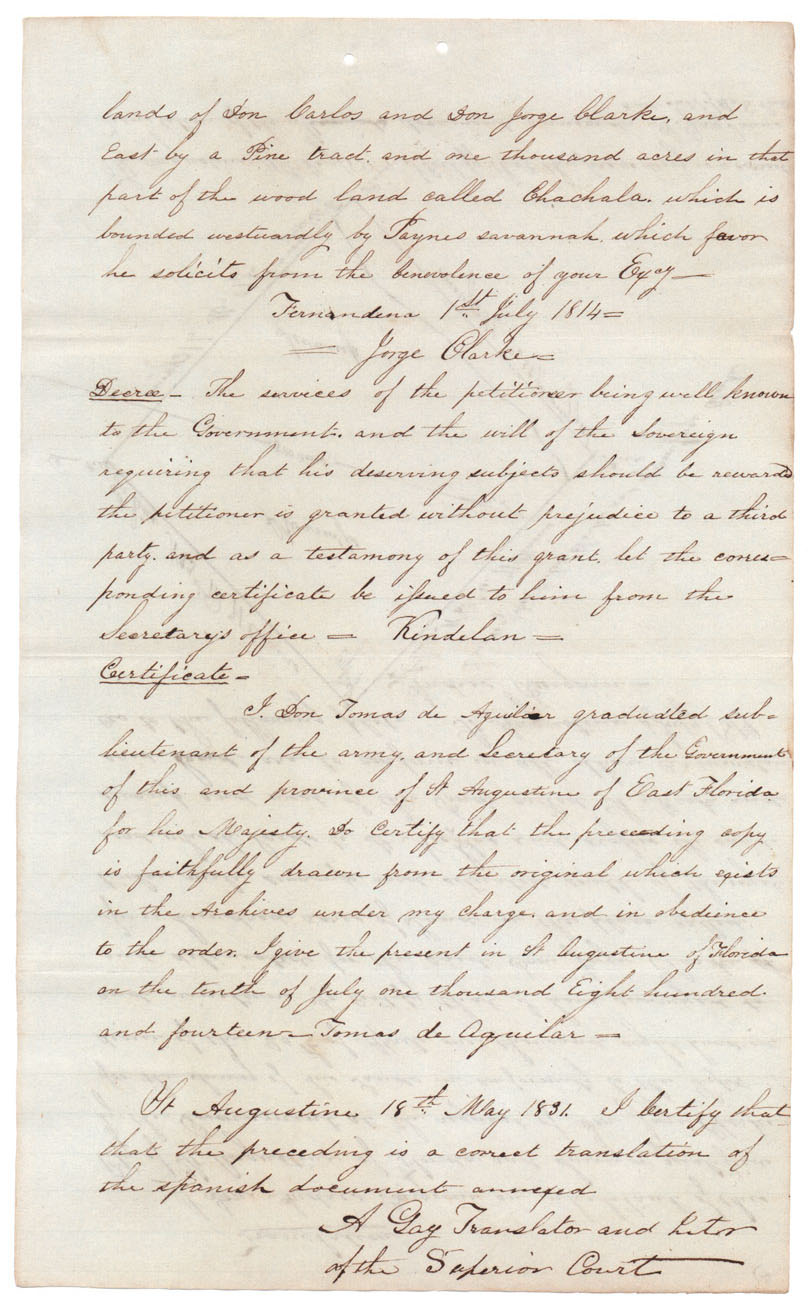 lands of Don Carlos and Don Jorge Clarke, and
East by a Pine tract. and one thousand acres in that
part of the wood land called Chachala. which is
bounded westwardly by Paynes savannah, which favor
he solicits from the benevolence of your Excy—
Fernandena 1st July 1814=
= Jorge Clarke=
Decree - The services of the petitioner being well known
to the Government. and the will of the Sovereign
requiring that his deserving subjects should be rewarded
the petitioner is granted without prejudice to a third
party. and as a testamony of this grant. let the corres=
ponding certificate be issued to him from the
Secretary's office = Kindelan =
Certificate=
I. Don Tomas de Aguilar graduated sub=
lieutenant of the army. and Secretary of the Government
of this and province of St Augustine of East Florida
for his Majesty. Do Certify that the preceeding copy
is faithfully drawn from the original which exists
in the Archives under my charge. and in obedience
to the order. I give the present in St Augustine of Florida
on the tenth of July one thousand Eight hundred.
and fourteen— Tomas de Aguilar =
St Augustine 18th May 1831. I Certify that
that the preceding is a correct translation of
the spanish document annexed
A Gay Translator and
of the Superior Court